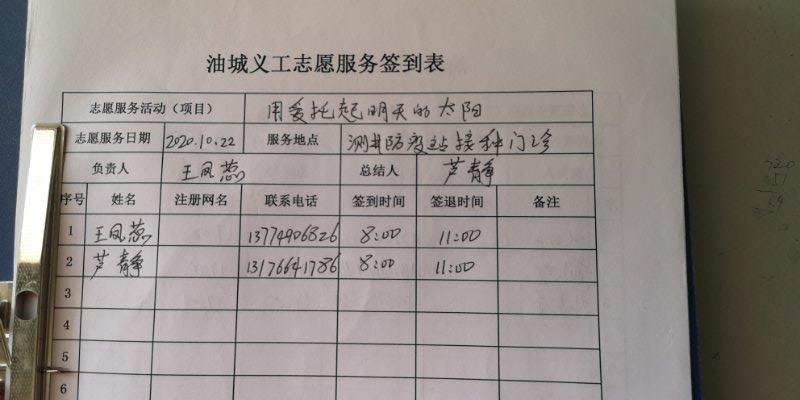 油城义工志愿服务签到表
志愿服务活动（项目） 用爱托起明天的太阳
志愿服务日期 2020.10.22 服务地点 测井防疫站接种门诊
负责人 王凤蕊 总结人 芦静
序号 姓名 注册网名 联系电话 签到时间 签退时间 备注
1 王凤蕊 13774906826 8:00 11:00
2 芦静 13176641786 8:00 11:00
3
4
5
6